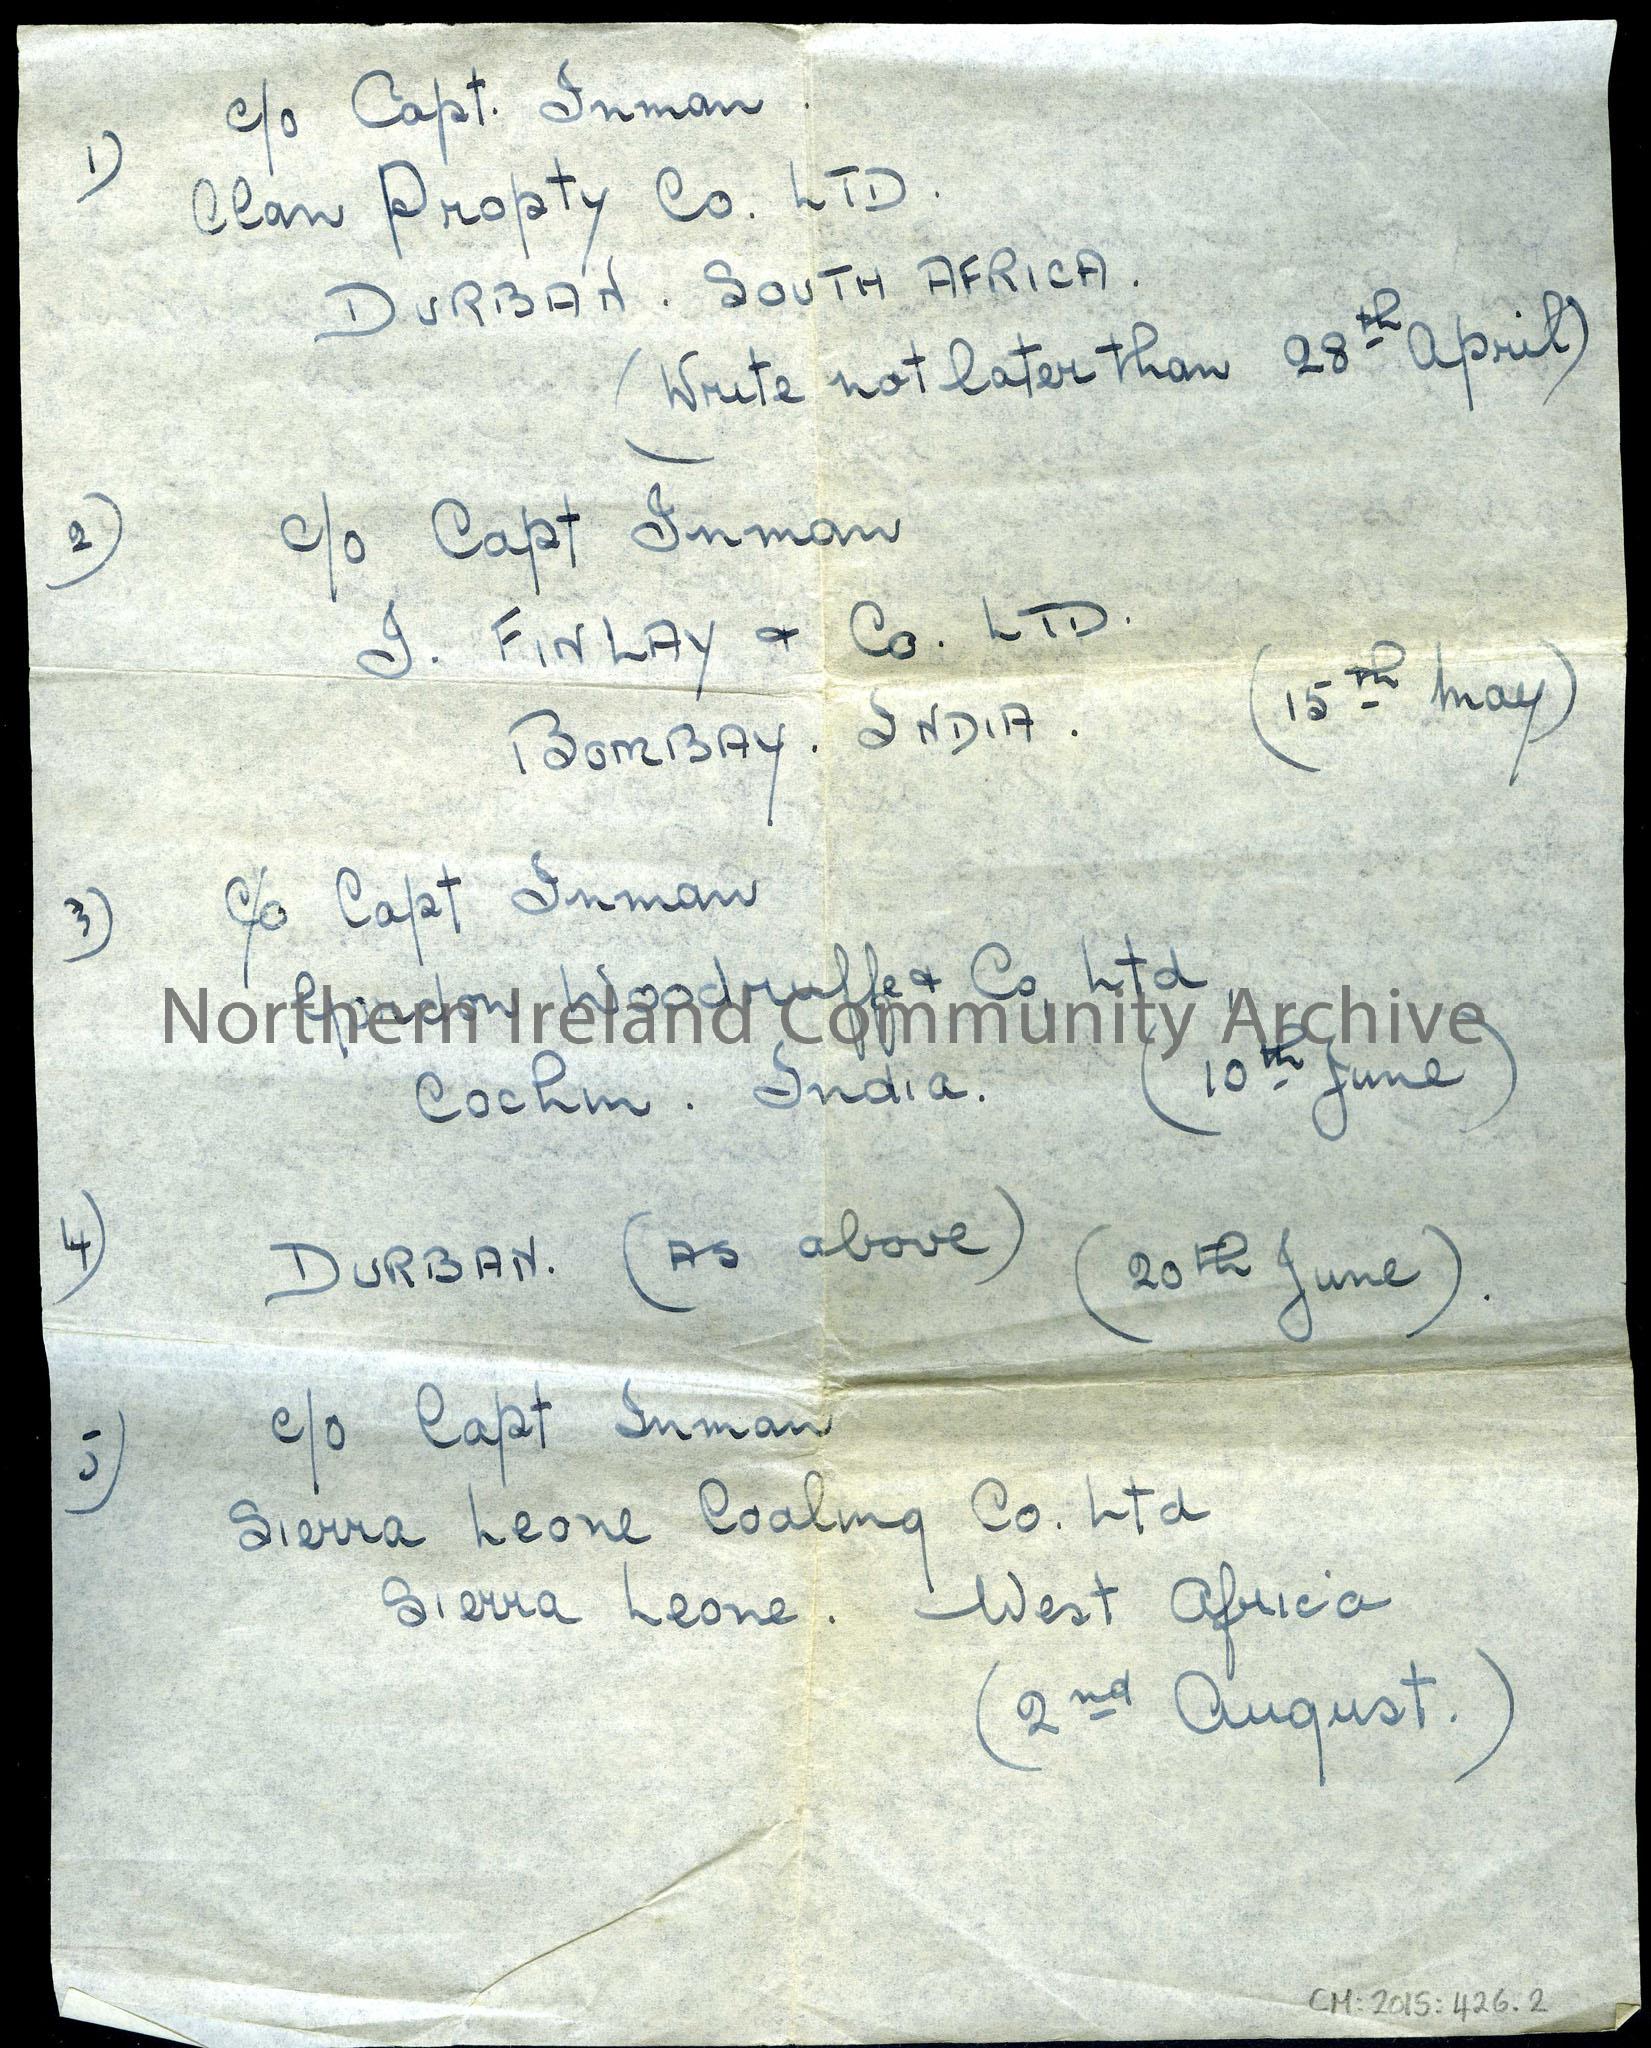 c/o Capt. Inman.
1) Clan Propty Co. LTD.
DURBAN. SOUTH AFRICA.
(Write not later than 28th April)
2) c/o Capt Inman
J. FINLAY & Co. LTD.
BOMBAY. INDIA. (15th May)
3) c/o Capt Inman
Gordon Woodruffe & Co. Ltd,
Northern Ireland Community Archive
Cochin. India. (10th June)
4) DURBAN. (AS above) (20th June).
5) c/o Capt Inman
Sierra Leone Coaling Co. Ltd
Sierra Leone. West Africa
(2nd August.)
CM:2015:426.2